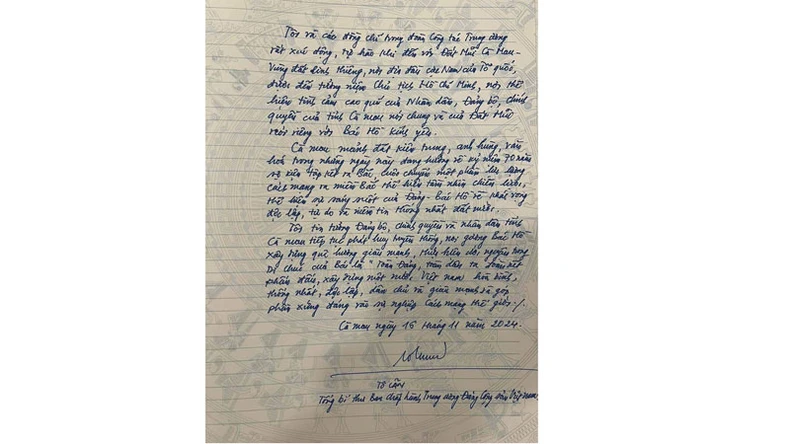 Tôi và các đồng chí trong đoàn Công tác Trung ương
rất xúc động, tự hào khi đến với Đất Mũi Cà Mau-
Vùng đất linh thiêng, nơi địa đầu cực Nam của Tổ quốc,
được đến tưởng niệm Chủ tịch Hồ Chí Minh, nơi thể
hiện tình cảm cao quí của Nhân dân, Đảng bộ, chính
quyền của tỉnh Cà Mau nói chung và của Đất Mũi
nói riêng với Bác Hồ kính yêu.
Cà Mau mảnh đất kiên trung, anh hùng, văn
hoá trong những ngày này đang hướng về kỷ niệm 70 năm
sự kiện tập kết ra Bắc, cuộc chuyển một phần lực lượng
cách mạng ra miền Bắc thể hiện tầm nhìn chiến lược,
thể hiện sự sáng suốt của Đảng - Bác Hồ về khát vọng
độc lập, tự do và niềm tin thống nhất đất nước.
Tôi tin tưởng Đảng bộ, chính quyền và nhân dân tỉnh
Cà Mau tiếp tục phát huy truyền thống, noi gương Bác Hồ
xây dựng quê hương giàu mạnh, thực hiện lời nguyện trong
Di chúc của Bác là "Toàn Đảng, toàn dân ta đoàn kết
phấn đấu, xây dựng một nước Việt Nam hoà bình,
thống nhất, độc lập, dân chủ và giàu mạnh và góp
phần xứng đáng vào sự nghiệp Cách mạng thế giới./.
Cà Mau ngày 15 tháng 11 năm 2024.
Tô Lâm
Tổng bí thư Ban chấp hành Trung ương Đảng Cộng sản Việt Nam